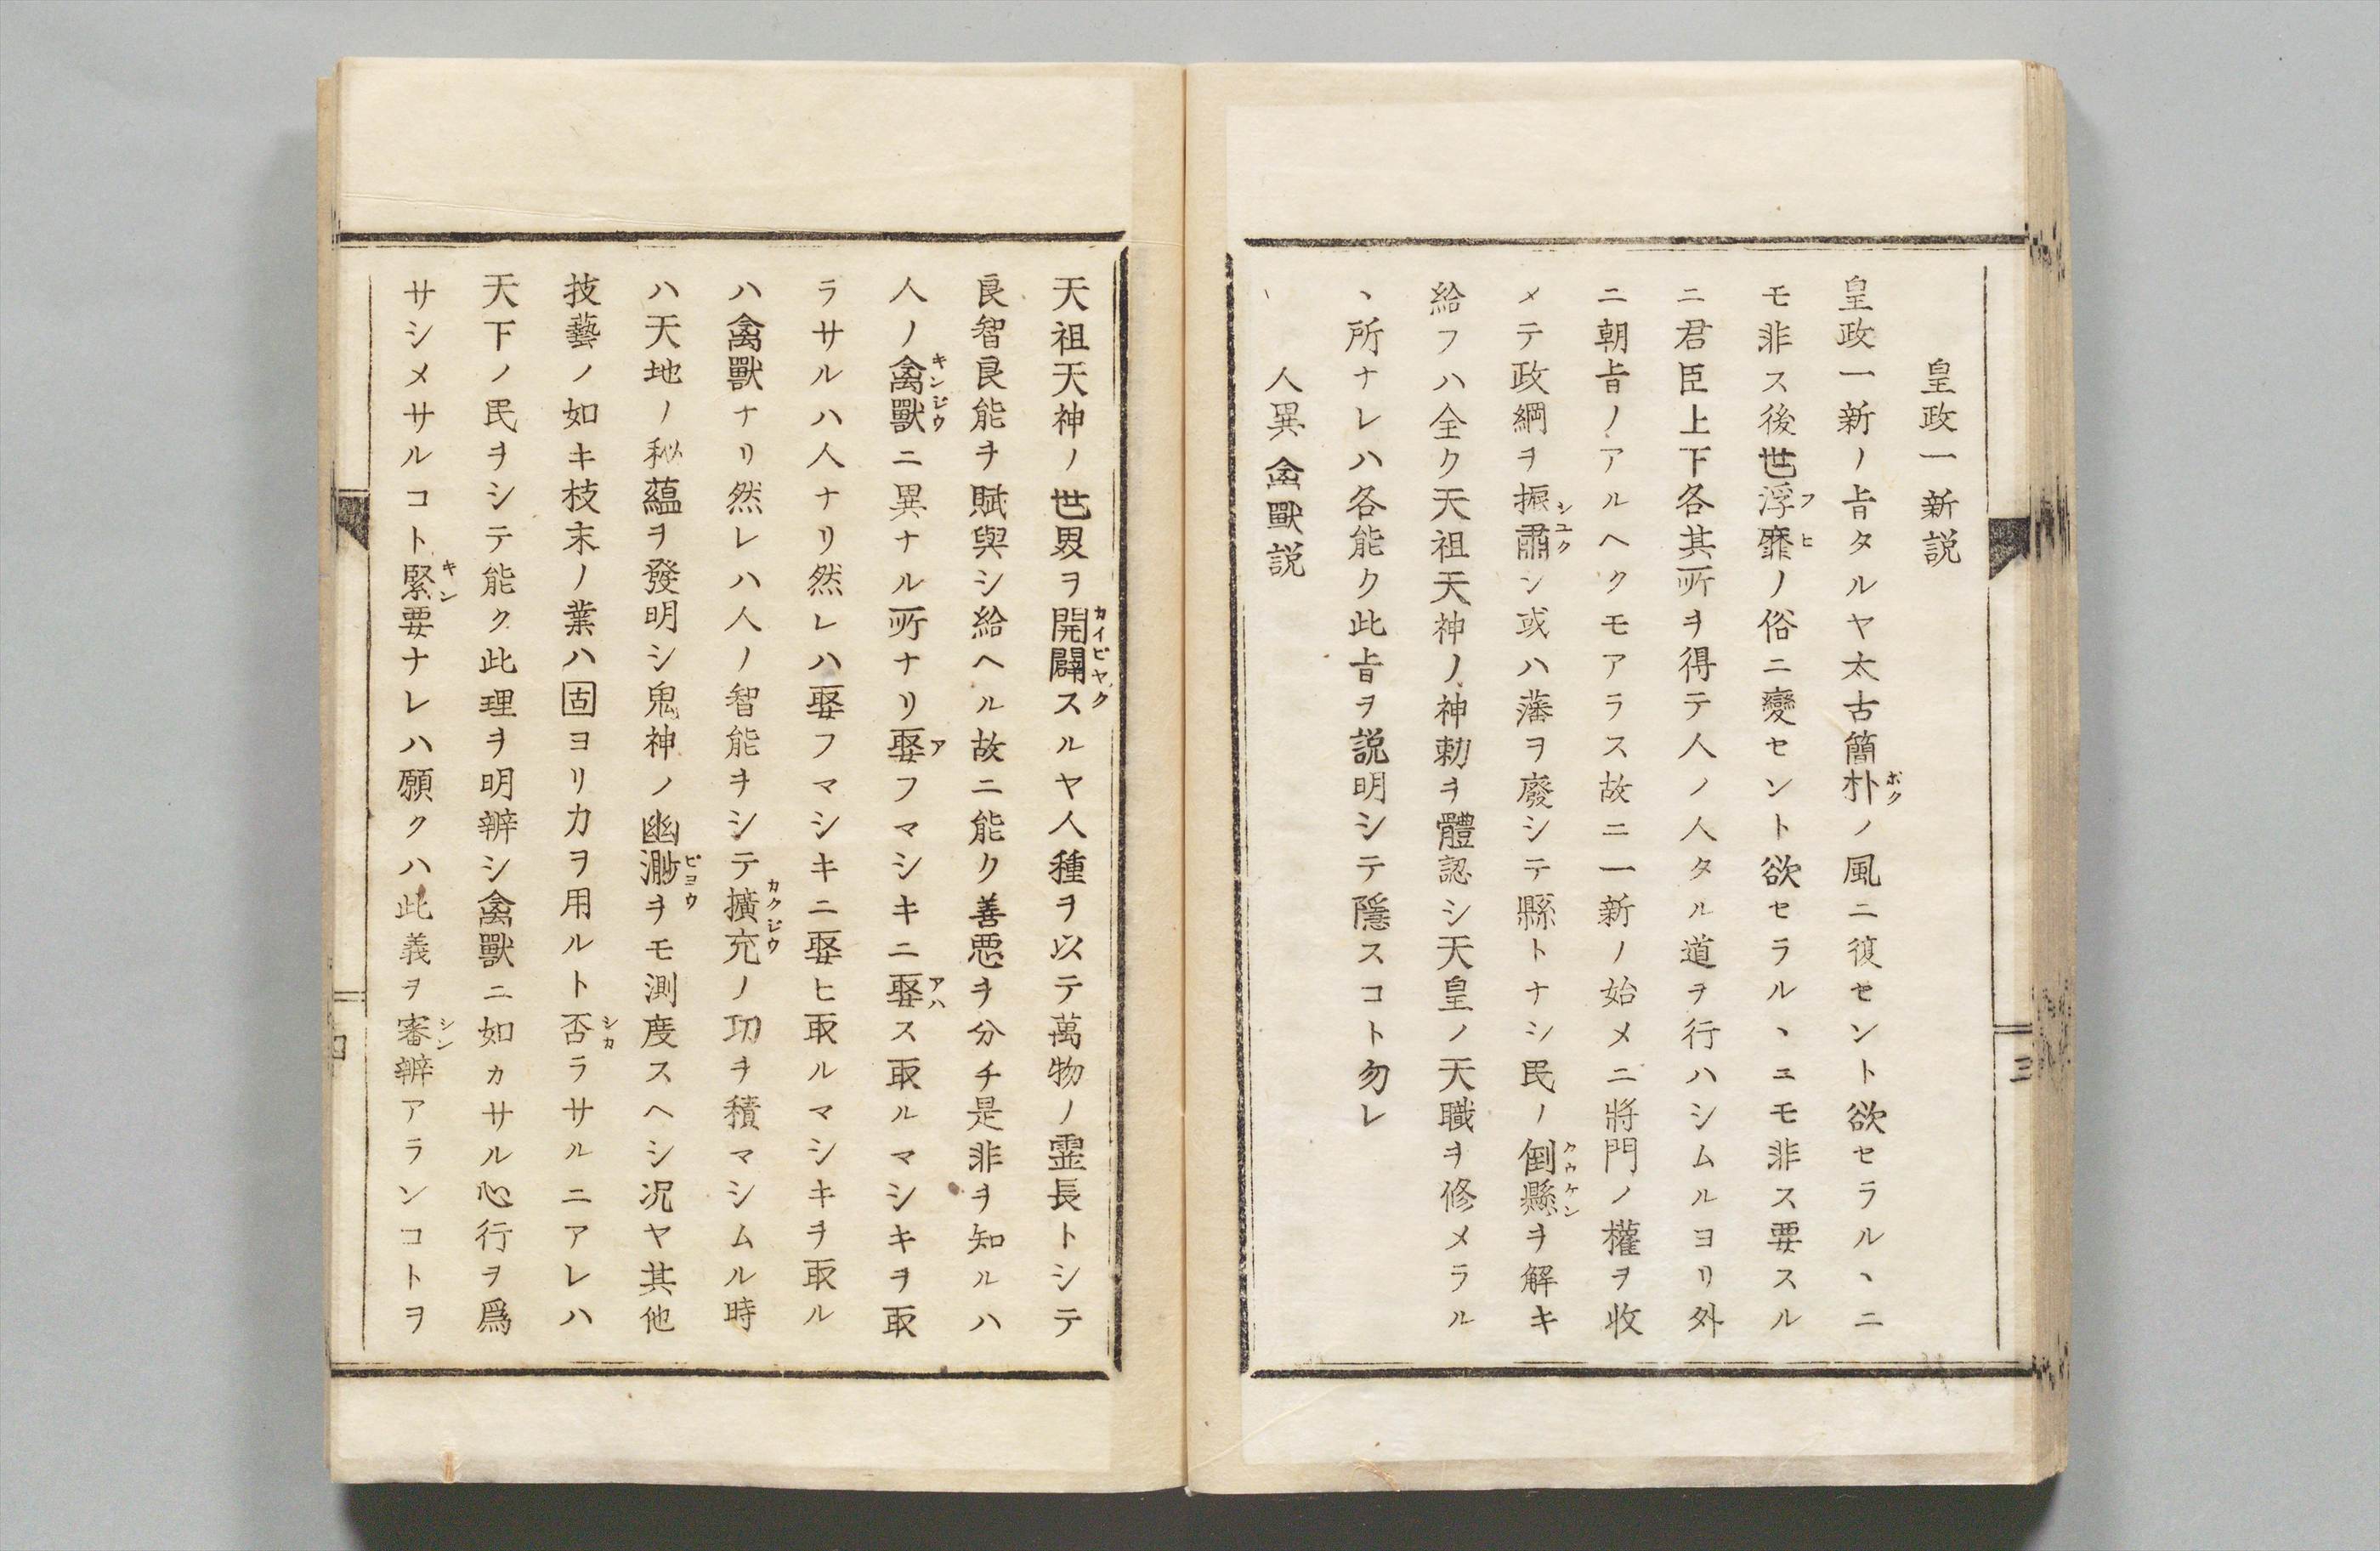 皇政一新説
皇政一新ノ旨タルヤ太古簡朴ノ風ニ復セント欲セラルヽニ
モ非ス後世浮靡ノ俗ニ變セント欲セラルヽニモ非ス要スル
ニ君臣上下各其所ヲ得テ人ノ人タル道ヲ行ハシムルヨリ外
ニ朝旨ノアルヘクモアラス故ニ一新ノ始メニ將門ノ權ヲ收
メテ政綱ヲ振肅シ或ハ藩ヲ廢シテ縣トナシ民ノ倒懸ヲ解キ
給フハ全ク天祖天神ノ神勅ヲ體認シ天皇ノ天職ヲ修メラル
ヽ所ナレハ各能ク此旨ヲ説明シテ隱スコト勿レ
人異禽獸説
天祖天神ノ世界ヲ開闢スルヤ人種ヲ以テ萬物ノ霊長トシテ
良智良能ヲ賦與シ給ヘル故ニ能ク善惡ヲ分チ是非ヲ知ルハ
人ノ禽獸ニ異ナル所ナリ娶フマシキニ娶ス取ルマシキヲ取
ラサルハ人ナリ然レハ娶フマシキニ娶ヒ取ルマシキヲ取ル
ハ禽獸ナリ然レハ人ノ智能ヲシテ擴充ノ功ヲ積マシムル時
ハ天地ノ秘蘊ヲ發明シ鬼神ノ幽渺ヲモ測度スヘシ况ヤ其他
技藝ノ如キ枝末ノ業ハ固ヨリ力ヲ用ルト否ラサルニアレハ
天下ノ民ヲシテ能ク此理ヲ明辨シ禽獸ニ如カサル心行ヲ爲
サシメサルコト緊要ナレハ願クハ此義ヲ審辨アランコトヲ
三
四